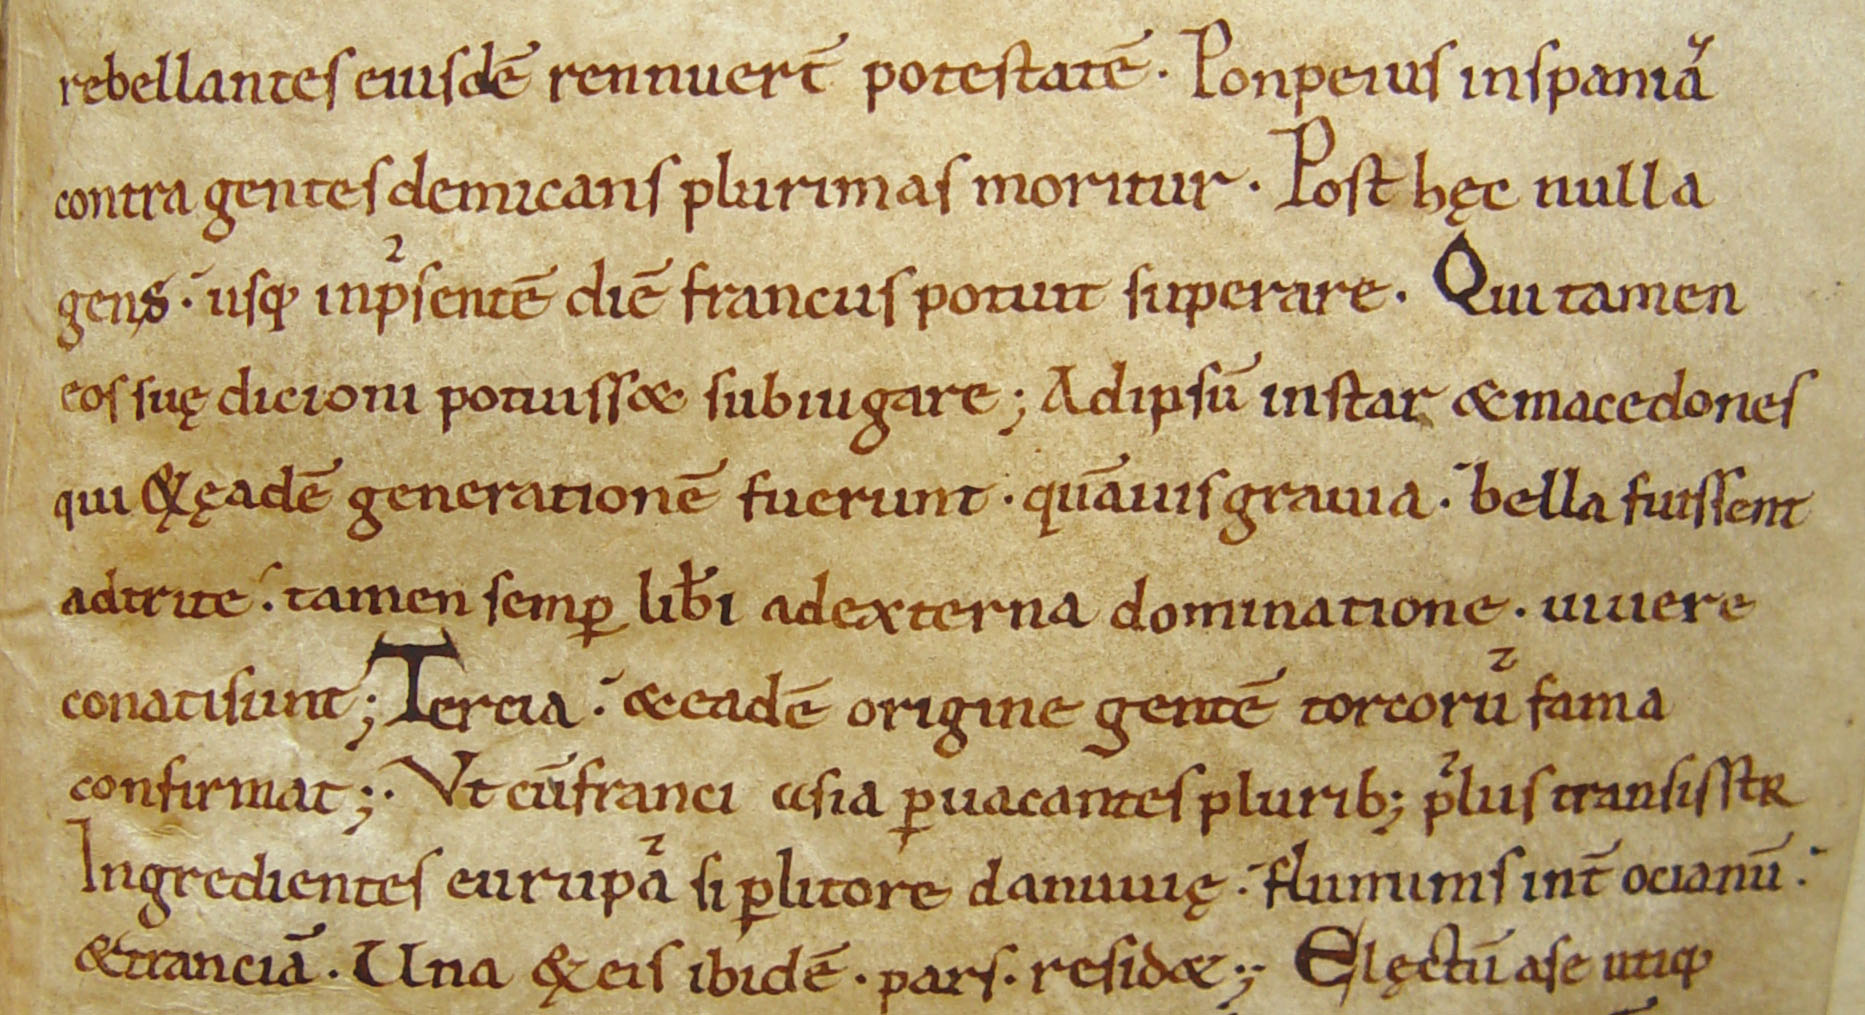 rebellantes eiusdē rennuert̄ potestatē. Ponpeius inspaniā
contra gentes demicans plurimas moritur. Post hęc nulla
gens. usq; inpsentē diē francus potuit superare. Qui tamen
eos suę dicioni potuiss& subiugare; Adipsū instar &macedones
qui &ęadē generationē fuerunt. quāuis grauia. bella fuissent
adtrite. tamen semꝑ lib̄i adexterna dominatione. uiuere
conatisunt; Tercia. &eadē origine gentē torcorū fama
confirmat;. Vt cūfranci asia ꝑuacantes plurib; p̄lus transisstR
Ingredientes eurupā si ꝑlitore danuuię. fluminis int̄ ocianū.
&traciā. Una &eis ibidē. pars. resid&; Elęctū ase utiq;